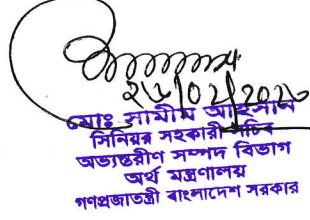 ২৬/০২/২০২৬
মোঃ সামীম আহসান
সিনিয়র সহকারী সচিব
অভ্যন্তরীণ সম্পদ বিভাগ
অর্থ মন্ত্রণালয়
গণপ্রজাতন্ত্রী বাংলাদেশ সরকার